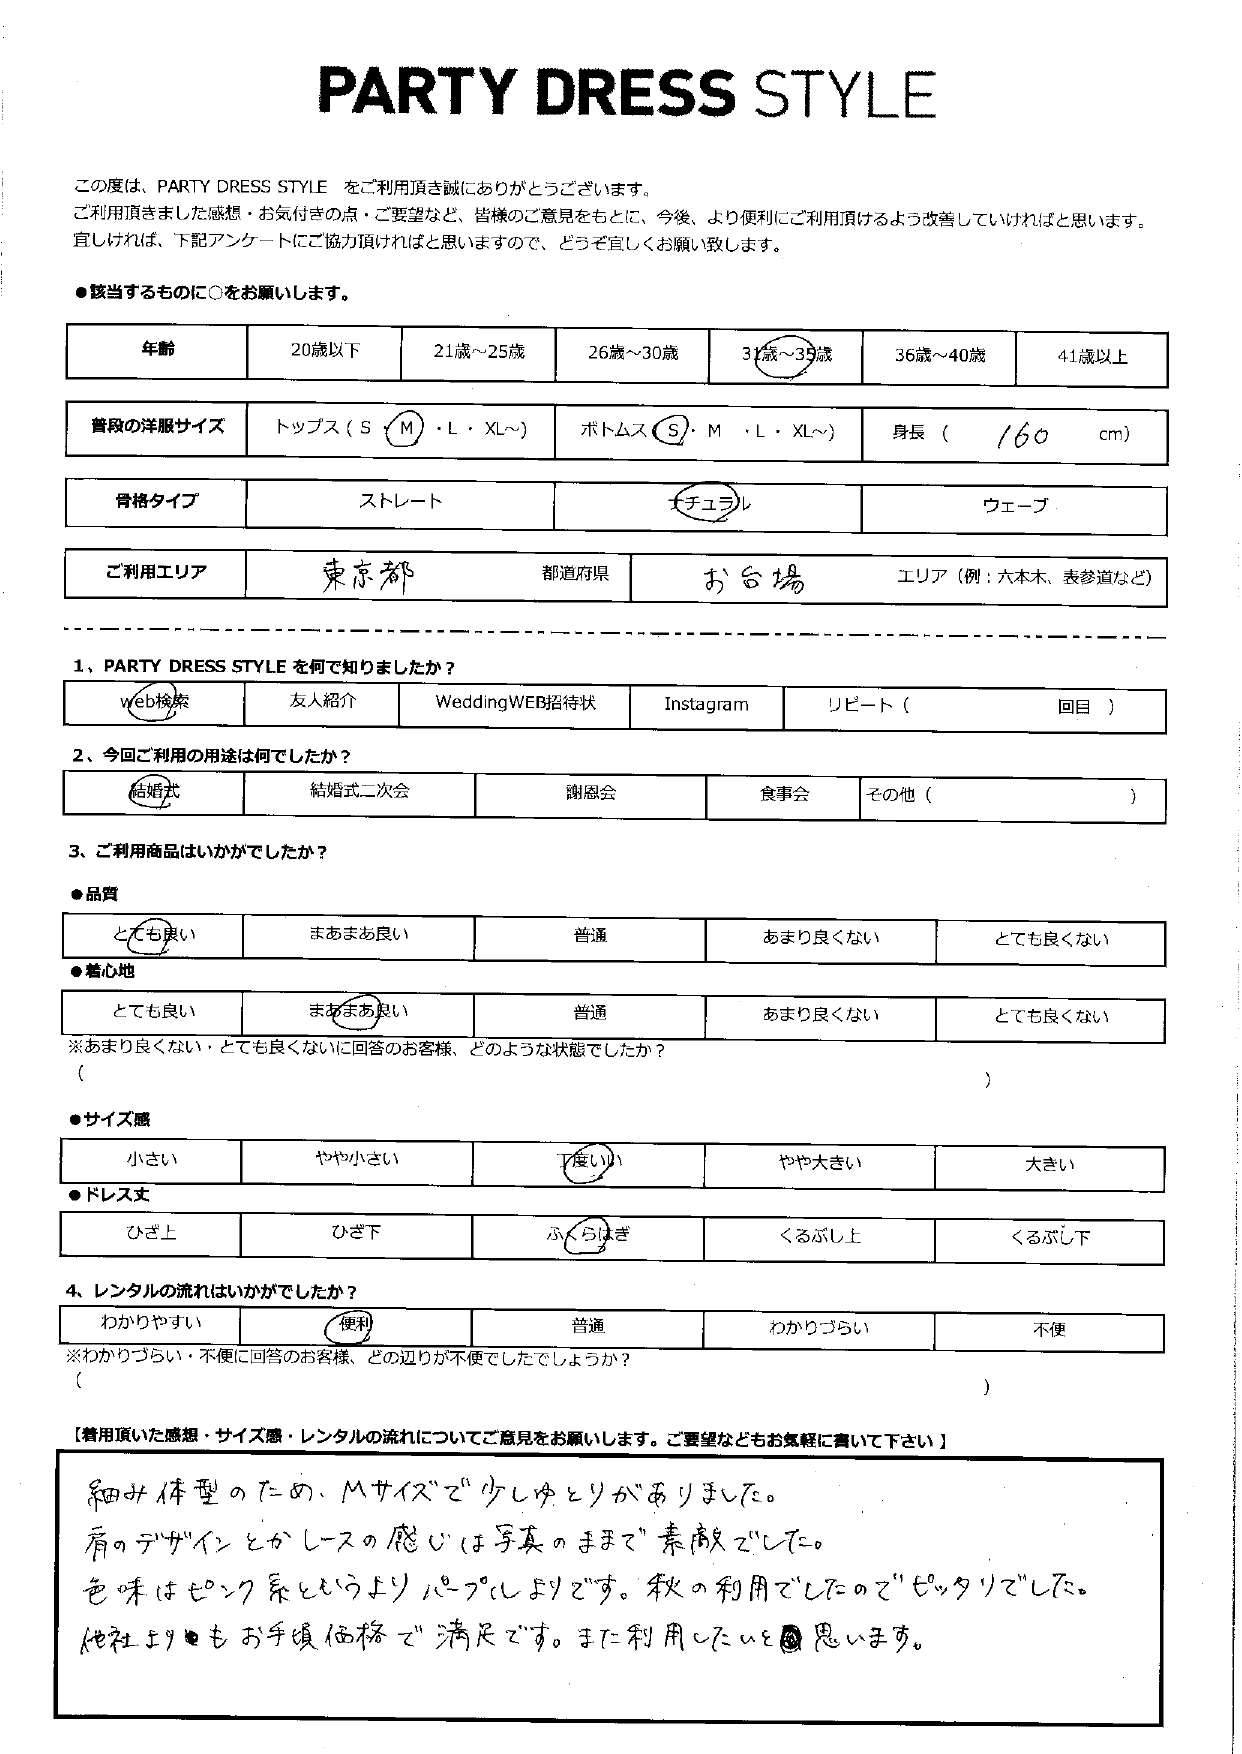 PARTY DRESS STYLE
この度は、PARTY DRESS STYLE をご利用頂き誠にありがとうございます。
ご利用頂きました感想・お気付きの点・ご要望など、皆様のご意見をもとに、今後、より便利にご利用頂けるよう改善していければと思います。
宜しければ、下記アンケートにご協力頂ければと思いますので、どうぞ宜しくお願い致します。
●該当するものに○をお願いします。
年齢 20歳以下 21歳～25歳 26歳～30歳 31歳～35歳 36歳～40歳 41歳以上
普段の洋服サイズ トップス ( S ・ M ・ L ・ XL～) ボトムス ( S ・ M ・ L ・ XL～) 身長 ( 160 cm)
骨格タイプ ストレート ナチュラル ウェーブ
ご利用エリア 東京都 都道府県 お台場 エリア（例：六本木、表参道など）
1、PARTY DRESS STYLE を何で知りましたか？
web検索 友人紹介 WeddingWEB招待状 Instagram リピート（ 回目 ）
2、今回ご利用の用途は何でしたか？
結婚式 結婚式二次会 謝恩会 食事会 その他（ ）
3、ご利用商品はいかがでしたか？
●品質
とても良い まあまあ良い 普通 あまり良くない とても良くない
●着心地
とても良い まあまあ良い 普通 あまり良くない とても良くない
※あまり良くない・とても良くないに回答のお客様、どのような状態でしたか？
（ ）
●サイズ感
小さい やや小さい 丁度いい やや大きい 大きい
●ドレス丈
ひざ上 ひざ下 ふくらはぎ くるぶし上 くるぶし下
4、レンタルの流れはいかがでしたか？
わかりやすい 便利 普通 わかりづらい 不便
※わかりづらい・不便に回答のお客様、どの辺りが不便でしたでしょうか？
（ ）
【着用頂いた感想・サイズ感・レンタルの流れについてご意見をお願いします。ご要望などもお気軽に書いて下さい 】
細み体型のため、Mサイズで少しゆとりがありました。
肩のデザインとかレースの感じは写真のままで素敵でした。
色味はピンク系というよりパープルよりです。秋の利用でしたのでピッタリでした。
他社よりもお手頃価格で満足です。また利用したいと思います。